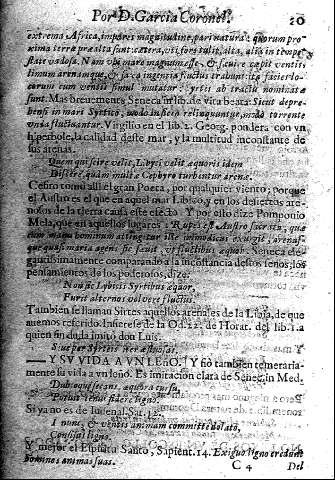 Por D. Garcia Coronel. 20
extrema Africa, impares magnitudine, pari natura: quorum pro-
xima terræ præ alta sunt: cætera, vbi fors tulit, alta, alia in tempe-
state vadosa. Nam vbi mare magnum esse, & sæuire cæpit ventis
limum arenamque, & saxa ingentia fluctus trahunt: ita facies lo-
corum cum ventis simul mutatur: Syrtes ab tractu nominatæ
sunt. Mas breuemente Seneca in lib. de vita beata: Sicut depre-
hensi in mari Syrtico, modo in sicco relinquuntur, modo torrente
vnda fluctuantur. Virgilio en el lib. 2. Georg. pondera con vn
hiperbole, la calidad deste mar, y la multitud inconstante de
sus arenas.
Quem qui scire velit, Libyci velit æquoris idem
Discere, quam multæ Zephyro turbentur arenæ.
Cefiro tomò alli el gran Poeta, por qualquier viento; porque
el Austro es el que en aquel mar Libico, y en los desiertos are-
nosos de la tierra causa este efeto. Y por esto dize Pomponio
Mela, que en aquellos lugares: Rupes est Austro sacrata, quæ
cum manu hominum attingitur ille immodicus exurgit, arenas-
que quasi maria agens sic sæuit, vt fluctibus
gantissimamente comparando a la inconstancia destos senos, los
pensamientos de los poderosos, dize.
Non sic Lybicis Syrtibus æquor,
Furit alternos volvere fluctus.
Tambien se llaman Sirtes aquellos arenales de la Libia, de que
auemos referido. Infierese de la Od. 22. de Horat. del lib. 1. a
quien sin duda imitò don Luis.
Siue per Syrtes iter æstuosas.
Y SV VIDA A VN LEÑO.] Y fiò tambien temeraria-
mente su vida a vn leño. Es imitacion clara de Senec. in Med.
Dubioque secans, æquora cursu,
Potuit tenui fidere ligno.
Si ya no es de Iuuenal Sat. 12.
I nunc, & ventis animam committe dolato,
Confisus ligno.
Y mejor el Espiritu Santo, Sapient. 14. Exiguo ligno credunt
homines animas suas.
C 4 Del